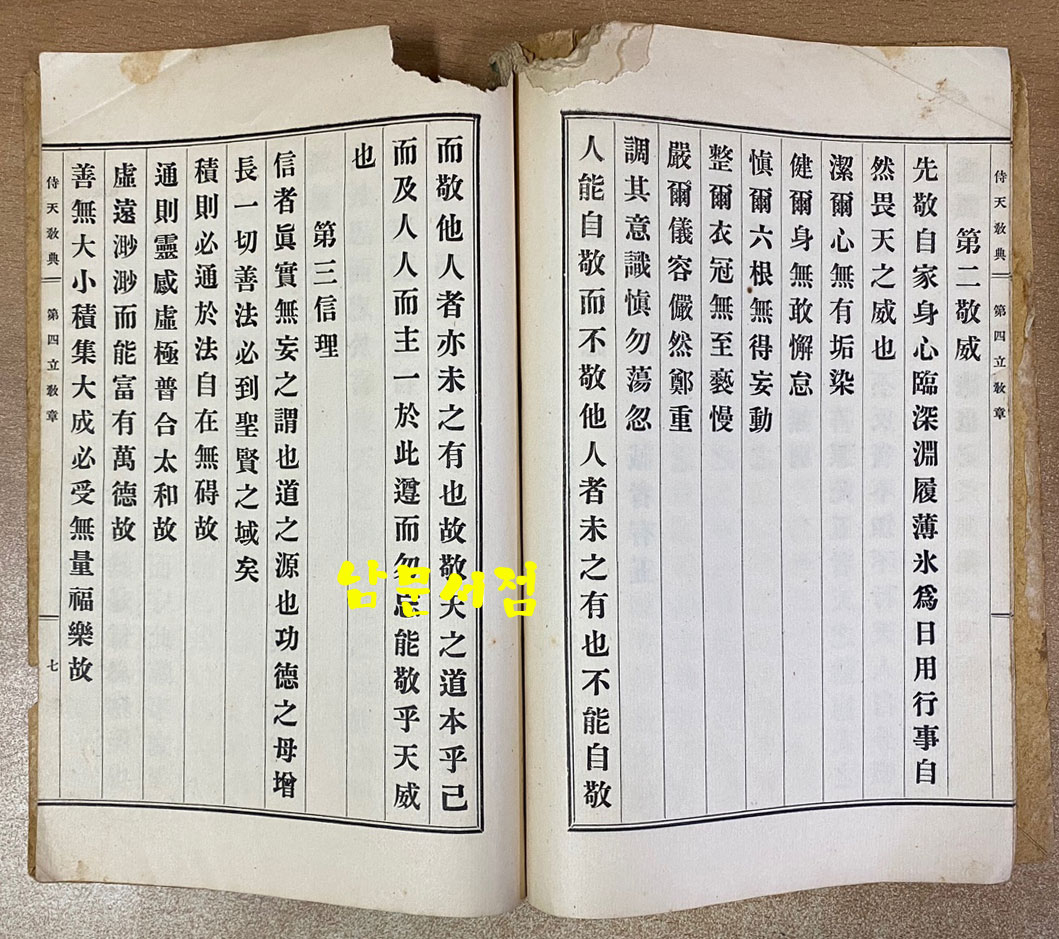 侍天敎典 第四立敎章
第二敬威
先敬自家身心臨深淵履薄氷爲日用行事自
然畏天之威也
潔爾心無有垢染
健爾身無敢懈怠
愼爾六根無得妄動
整爾衣冠無至褻慢
嚴爾儀容儼然鄭重
調其意識愼勿蕩忽
人能自敬而不敬他人者未之有也不能自敬
而敬他人者亦未之有也故敬天之道本乎己
而及人人而主一於此遵而勿忘能敬乎天威
也
第三信理
信者眞實無妄之謂也道之源也功德之母增
長一切善法必到聖賢之域矣
積則必通於法自在無碍故
通則靈感虛極普合太和故
虛遠渺渺而能富有萬德故
善無大小積集大成必受無量福樂故
侍天敎典 第四立敎章 七
남문서점